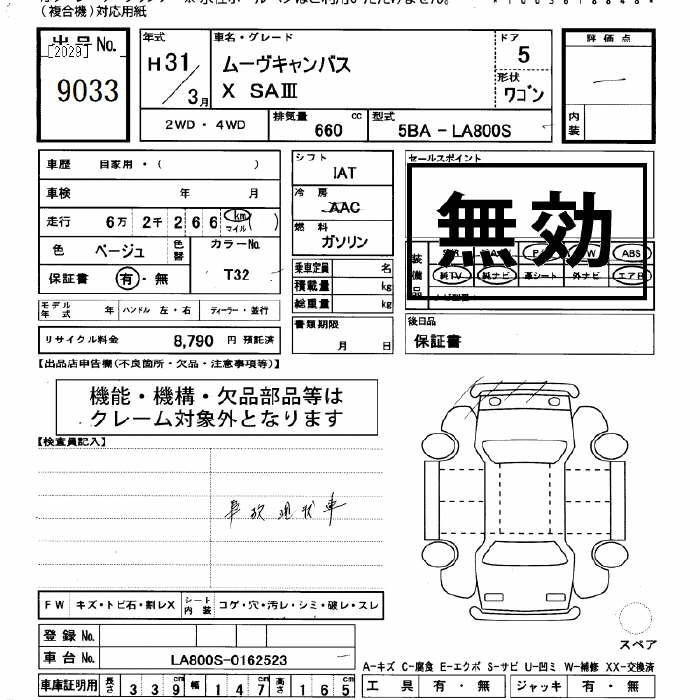 (複合機)対応用紙
出品No.
[2029]
9033
年式
H31
3月
車名・グレード
ムーヴキャンバス
X SAⅢ
ドア
5
形状
ワゴン
評価点
内装
2WD・4WD
排気量
cc
660
型式
5BA-LA800S
車歴 自家用・( )
車検 年 月
走行 6万 2千 2 6 6 km マイル ( )
色 ベージュ 色替
カラーNo.
T32
保証書 有・無
モデル年式 年 ハンドル 左・右 ディーラー・並行
リサイクル料金 8,790 円 預託済
シフト
IAT
冷房
AAC
燃料
ガソリン
乗車定員 名
積載量 kg
総重量 kg
書類期限
月 日
セールスポイント
無効
装備品
ABS
純TV 純ナビ 革シート 外ナビ エアB
後日品
保証書
【出品店申告欄(不良箇所・欠品・注意事項等)】
機能・機構・欠品部品等は
クレーム対象外となります
【検査員記入】
事故現状車
FW キズ・トビ石・割レX シート内装 コゲ・穴・汚レ・シミ・破レ・スレ
登録No.
車台No. LA800S-0162523
車庫証明用 長さ 3 3 9 幅 1 4 7 高さ 1 6 5
スペア
A-キズ C-腐食 E-エクボ S-サビ U-凹ミ W-補修 XX-交換済
工具 有・無 ジャッキ 有・無